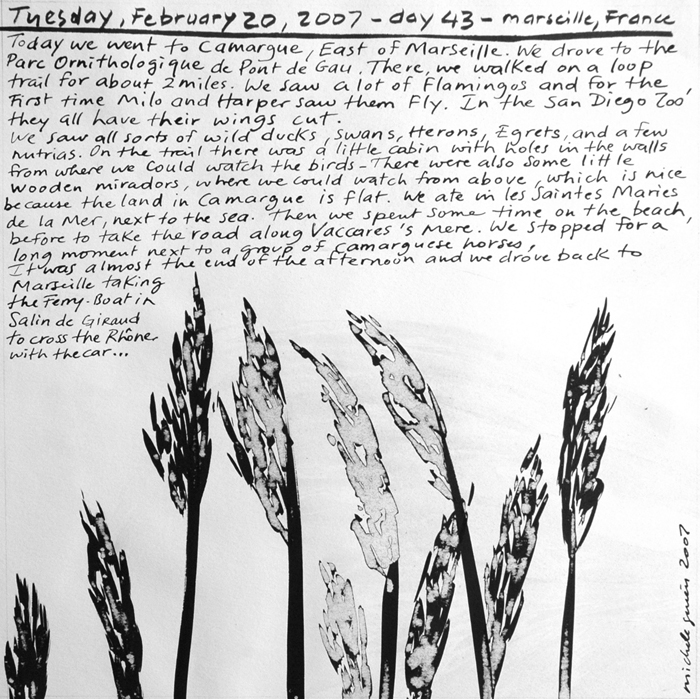 Tuesday, February 20, 2007 - day 43 - marseille, France
Today we went to Camargue, East of Marseille. We drove to the
Parc Ornithologique de Pont de Gau. There, we walked on a loop
trail for about 2 miles. We saw a lot of Flamingos and for the
First time Milo and Harper saw them Fly. In the San Diego Zoo,
they all have their wings cut.
We saw all sorts of wild ducks, swans, Herons, Egrets, and a few
nutrias. On the trail there was a little cabin with holes in the walls
from where we could watch the birds - There were also some little
wooden miradors, where we could watch from above, which is nice
because the land in Camargue is flat. We ate in les Saintes Maries
de la Mer, next to the sea. Then we spent some time on the beach,
before to take the road along Vaccares's Mere. We stopped for a
long moment next to a group of camarguese horses,
It was almost the end of the afternoon and we drove back to
Marseille taking
the Ferry-Boat in
Salin de Giraud
to cross the Rhône
with the car...
michele guieu 2007